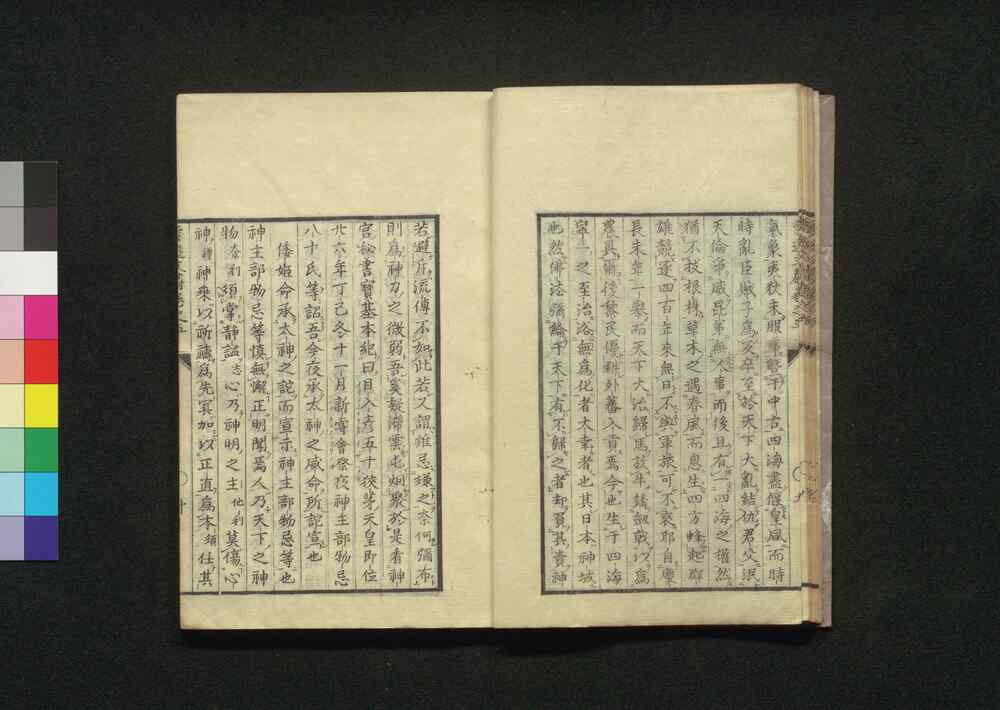 氣象夷狄未服兼整于中古四海盡偃皇風而時
時亂臣賊子爲災卒至於天下大亂結仇君父泯
天倫爭威昆弟無人事而後且有一四海之權然
猶不拔根株草木之遇春風而息生四方蜂起群
雄競逐四百年來無日不與軍旅可不哀耶自慶
長末年一變而天下大治歸馬放牛鑄劔戟以爲
農具爾後黎民優耕外蕃入貢焉今也生于四海
寧一之至治浴無爲化者大幸者也其日本神域
也然佛法彌綸于天下有不歸之者却賀其貴神
若避而流傳不如此若又謂雖忌嫌之奈何彌布
則爲神力之微弱吾儕疑滯雲屯烟聚於是看神
宮秘書寶基本紀曰目入彦五十狹茅天皇即位
廿六年丁巳冬十一月新嘗會祭夜神主部物忌
八十氏等詔吾今夜承太神之威命所託宣也
倭姬命承太神之託而宣示神主部物忌等也
神主部物忌等愼無懈正明聞焉人乃天下之神
物奈利須掌靜謐志心乃神明之主他利莫傷心
神禮神乘以祈禱爲先冥加以正直爲本須任其